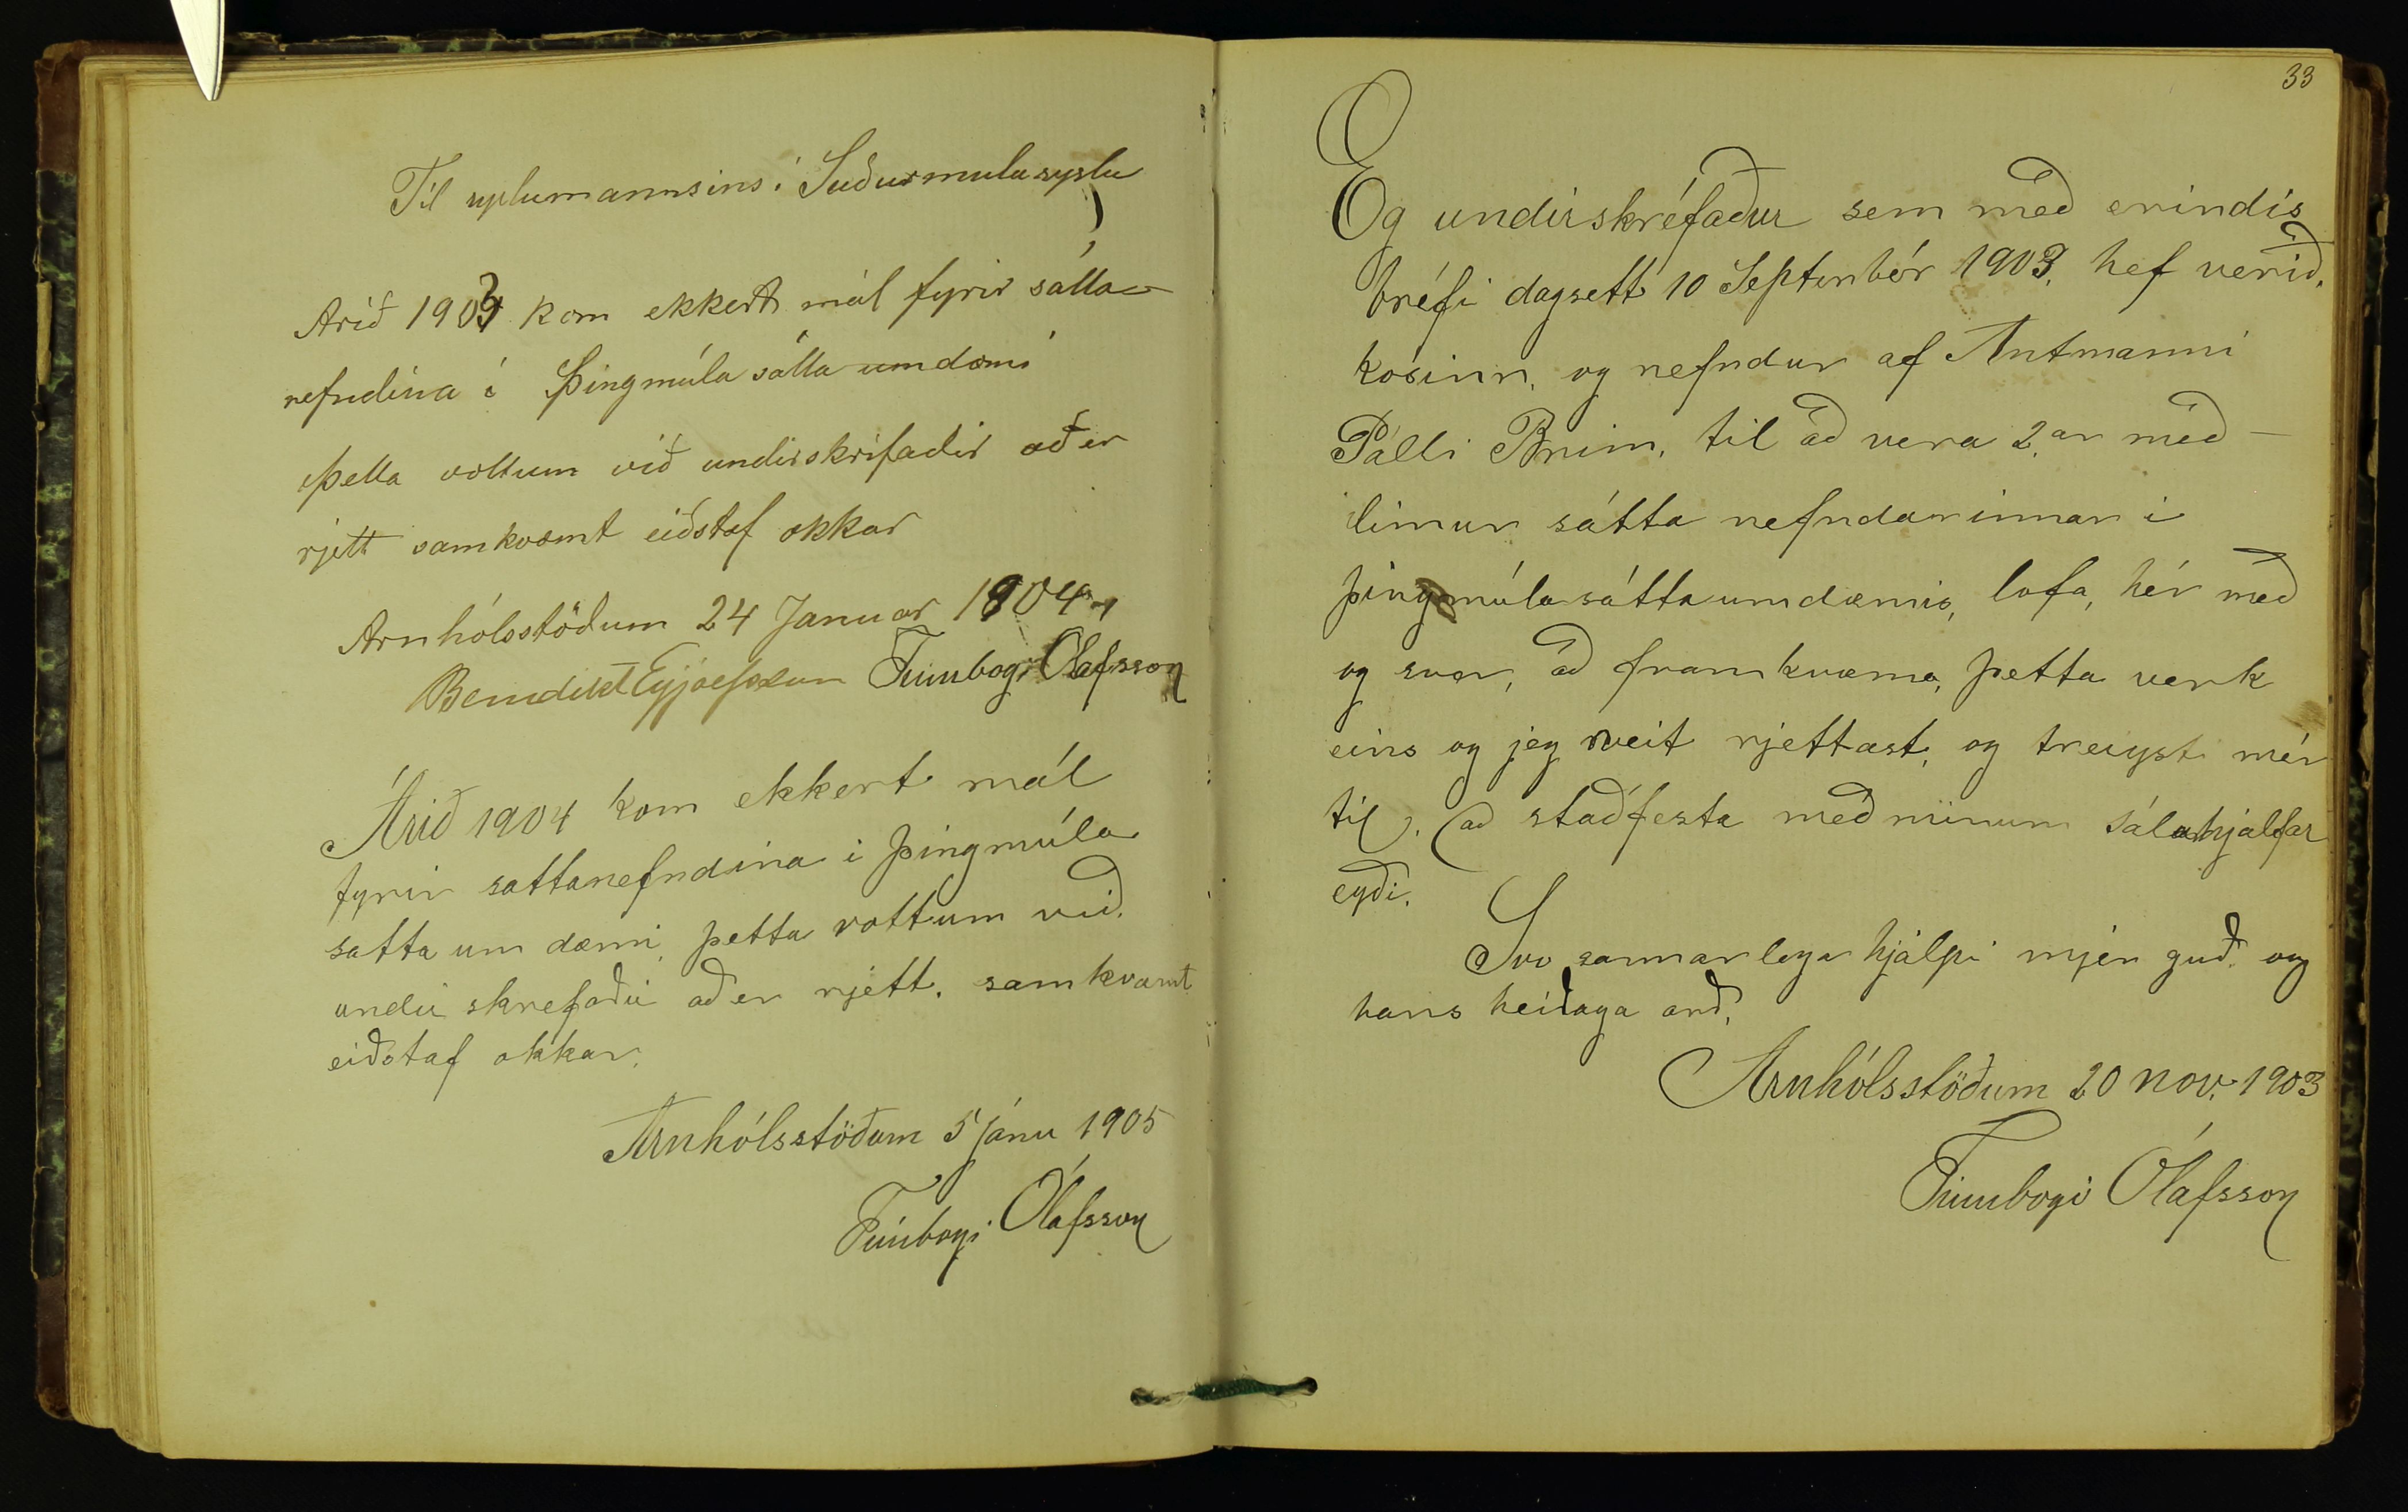 Til syslumannsins í Suðurmulasyslu
Arið 1903 kom ekkert mál fyrir sátta
nefndina í Þingmúla sátta umdæmi
Þetta vottum við undirskrifadir að er
rjett samkvæmt eiðstaf okkar
Arnhólsstöðum 24 Januar 1904
Benidikt Eyjolfsson Finnbogi Olafsson
Árið 1904 kom ekkert mál
fyrir sattanefndina i þingmúla
satta um dæmi, þetta vottum við.
undir skrifaðir að er rjett. samkvæmt
eiðstaf okkar.
Arnhólsstöðum 5 janu 1905
Finbogi Ólafsson
33
Eg undirskrifaður sem með erindis
bréfi dagsett 10 Septenbér 1903, hef verið.
kosinn, og nefndur af Amtmanni
Pálli Briim, til að vera 2.ar með-
limur sátta nefndarinnar i
þingmúlasáttaumdæmis, lofa, hér með
og sver, að framkvæma, þetta verk
eins og jeg veit rjettast, og treiyst mér
til. að staðfesta með minum sáluhjálpar
eyði.
Svo sannarlega hjálpi mjér guð og
hans heilaga orð,
Arnhólsstöðum 20 nov. 1903
Finnbogi Ólafsson